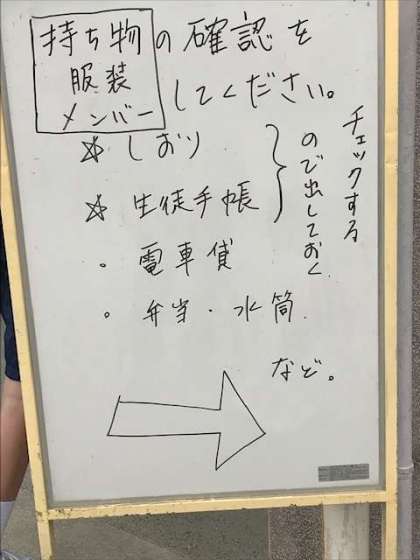 持ち物の確認を
服装
メンバーしてください。
☆しおり
☆生徒手帳
チェックする
ので出しておく
・電車賃
・弁当・水筒
など。